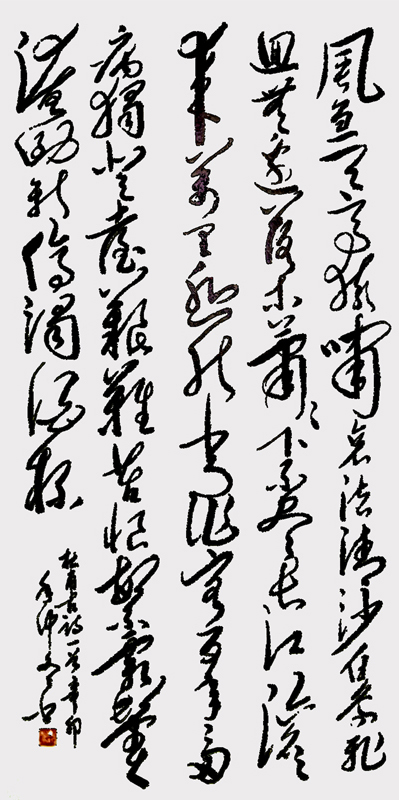 風急天高猿嘯哀渚清沙白鳥飛
迴無邊落木蕭蕭下不盡長江滾滾
來萬里悲秋常作客百年多
病獨登臺艱難苦恨繁霜鬢
潦倒新停濁酒杯
杜甫古詩一首辛卯